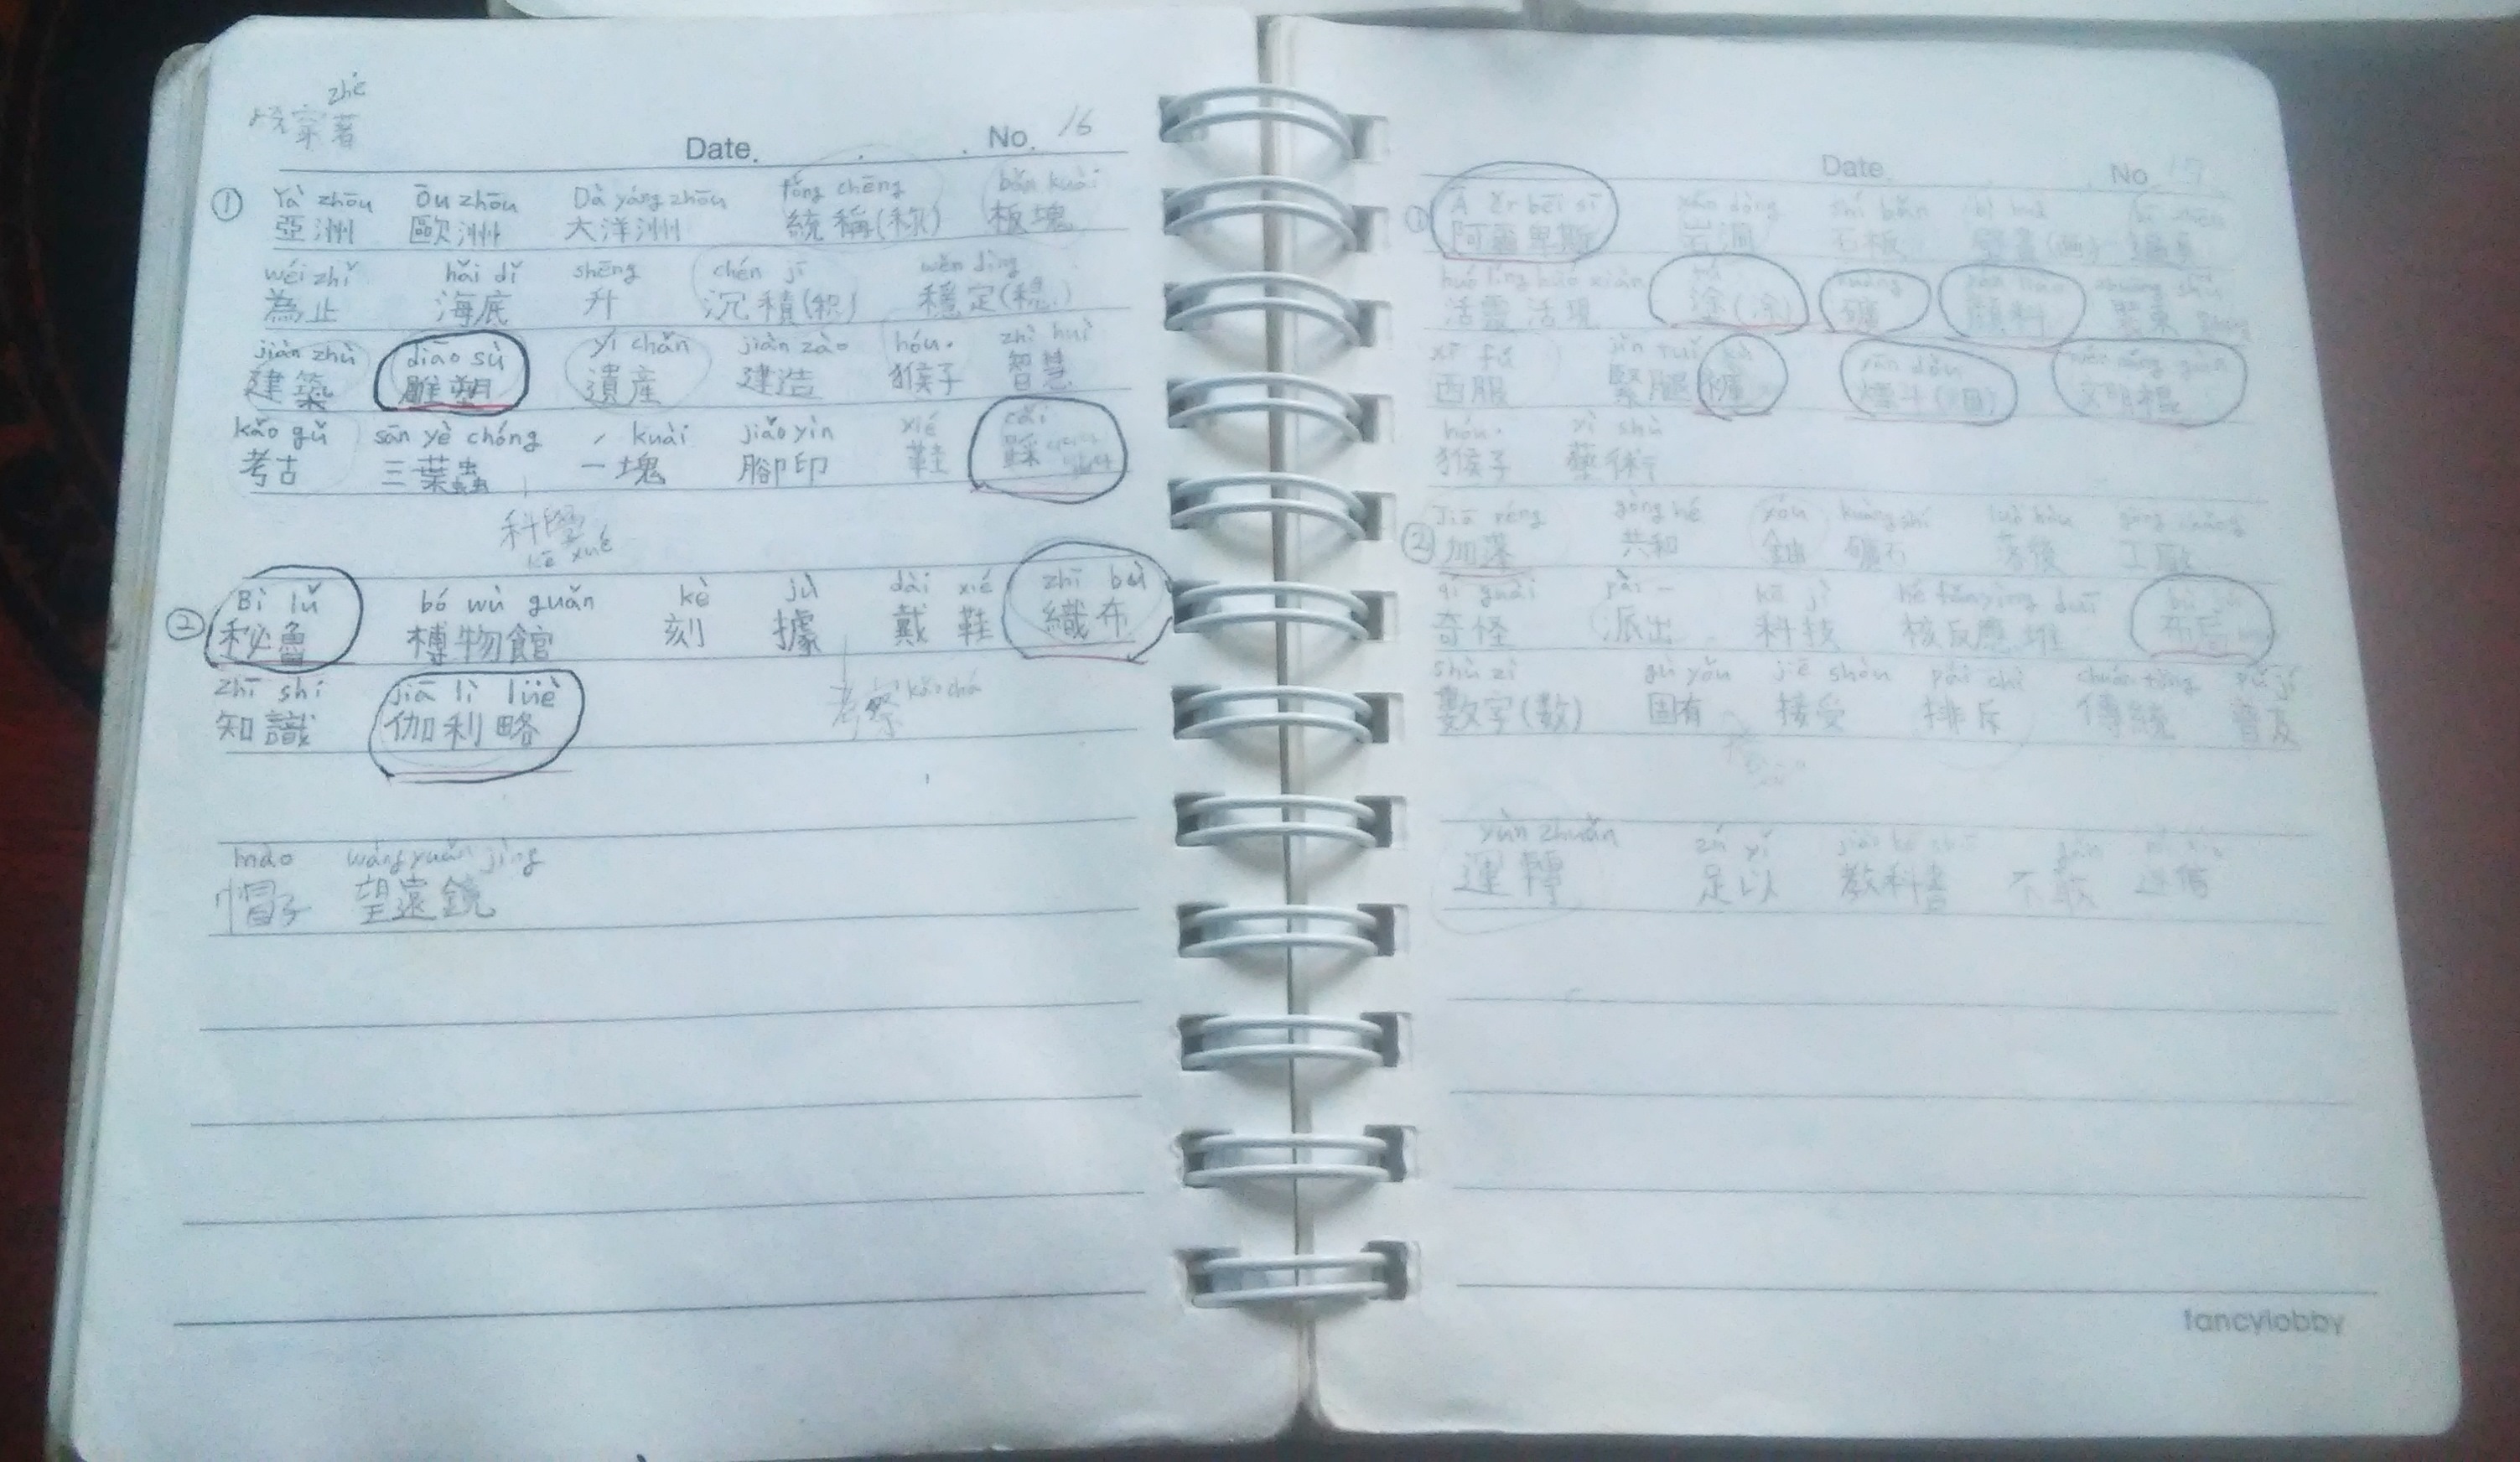 zhè
家著
Date. No. 16
① Yà zhōu Ōu zhōu Dà yáng zhōu tǒng chēng bǎn kuài
亞洲 歐洲 大洋洲 統稱(称) 板塊
wéi zhǐ hǎi dǐ shēng chén jī wěn dìng
為止 海底 升 沉積(积) 穩定(稳)
jiàn zhù diāo sù yí chǎn jiàn zào hóu. zhì huì
建築 雕塑 遺產 建造 猴子 智慧
kǎo gǔ sān yè chóng kuài jiǎo yìn xié cǎi
考古 三葉蟲 一塊 腳印 鞋 踩
科學
kē xué
② Bì lǔ bó wù guǎn kè jù dài xié zhī bù
秘魯 博物館 刻 據 戴 鞋 織布
zhī shí jiā lì lüè
知識 伽利略
考察 kǎo chá
mào wàng yuǎn jìng
帽子 望遠鏡
Date. No. 17
① Ā ěr bēi sī yán dòng shí bǎn bì huà
阿爾卑斯 岩洞 石板 壁畫(画)
huó líng huó xiàn tú
活靈活現 塗(涂) 礦 顏料
xī fú jǐn tuǐ kù yān dǒu
西服 緊腿褲 煙斗(烟) 文明棍
hóu. yì shù
猴子 藝術
gòng hé yóu kuàng shí luò hòu gōng chǎng
② 加蓬 共和 鈾 礦石 落後 工廠
qí guài pài kē jì hé fǎn yìng duī
奇怪 派出 科技 核反應堆 布局
shù zì gù yǒu jiē shòu pái chì chuán tǒng pǔ jí
數字(数) 固有 接受 排斥 傳統 普及
yùn zhuǎn zú yǐ
運轉 足以 教科書 不敢 迷信
fancylobby